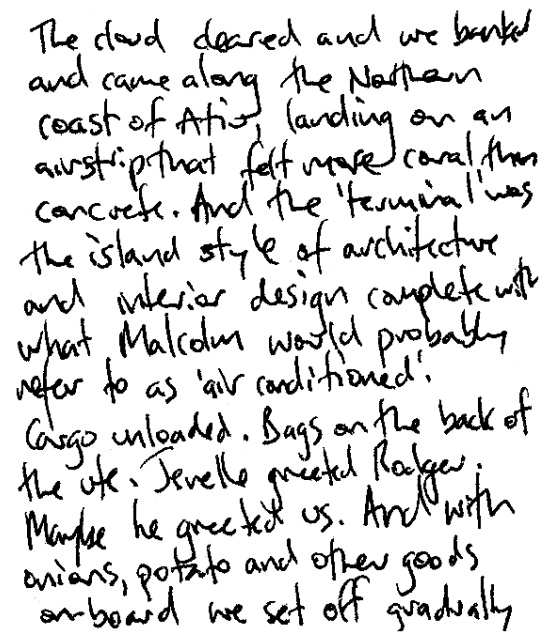 The cloud cleared and we banked
and came along the Northern
coast of Atiu, landing on an
airstrip that felt more coral than
concrete. And the 'terminal' was
the island style of architecture
and interior design complete with
what Malcolm would probably
refer to as 'air conditioned'.
Cargo unloaded. Bags on the back of
the ute. Jevelle greeted Rodger.
Maybe he greeted us. And with
onions, potato and other goods
on-board we set off gradually